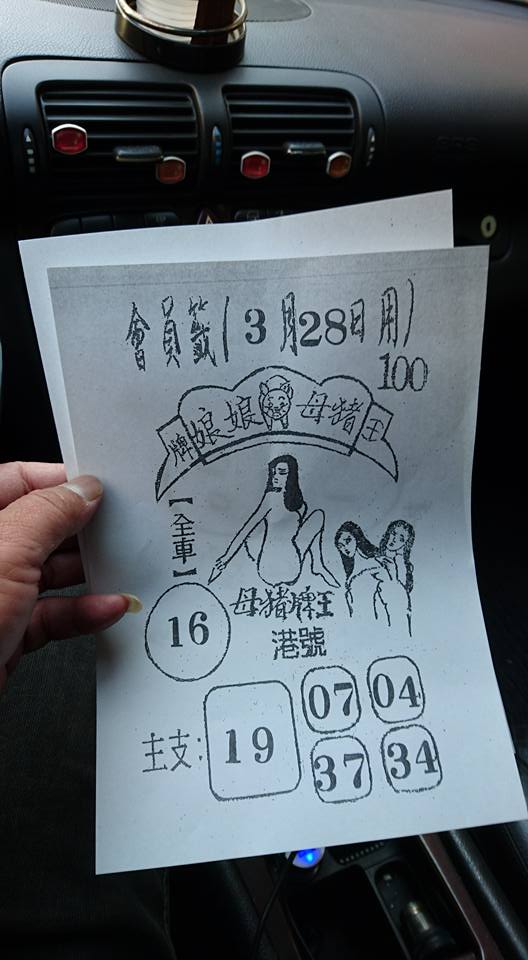 會員籤(3月28日用)
100
牌娘娘 母豬王
【全車】
16
母豬牌王
港號
07 04
主支: 19
37 34